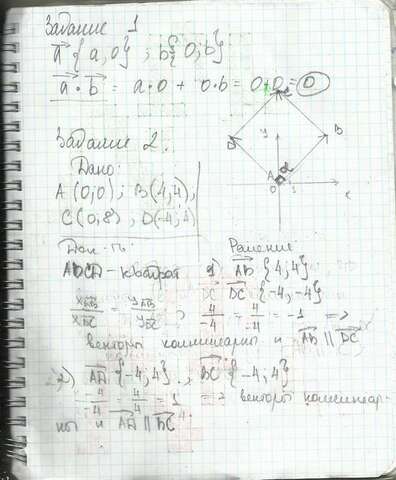 Задание 1
a {a, 0} ; b {0; b}
a · b = a · 0 + 0 · b = 0 + 0 = 0
Задание 2.
Дано:
A (0,0) ; B (4,4),
C (0,8) , D (-4,4)
y
B
A
O
Док-ть:
квадрат
Решение
1) AB {4; 4}
DC DC {-4, -4}
4/-4 = 4/-4 = -1 =>
векторы коллинеарны и AB || DC
2) AD {-4, 4} ; BC {-4; 4}
-4/-4 = 4/4 = 1 => векторы коллинеар-
ны и AD || BC